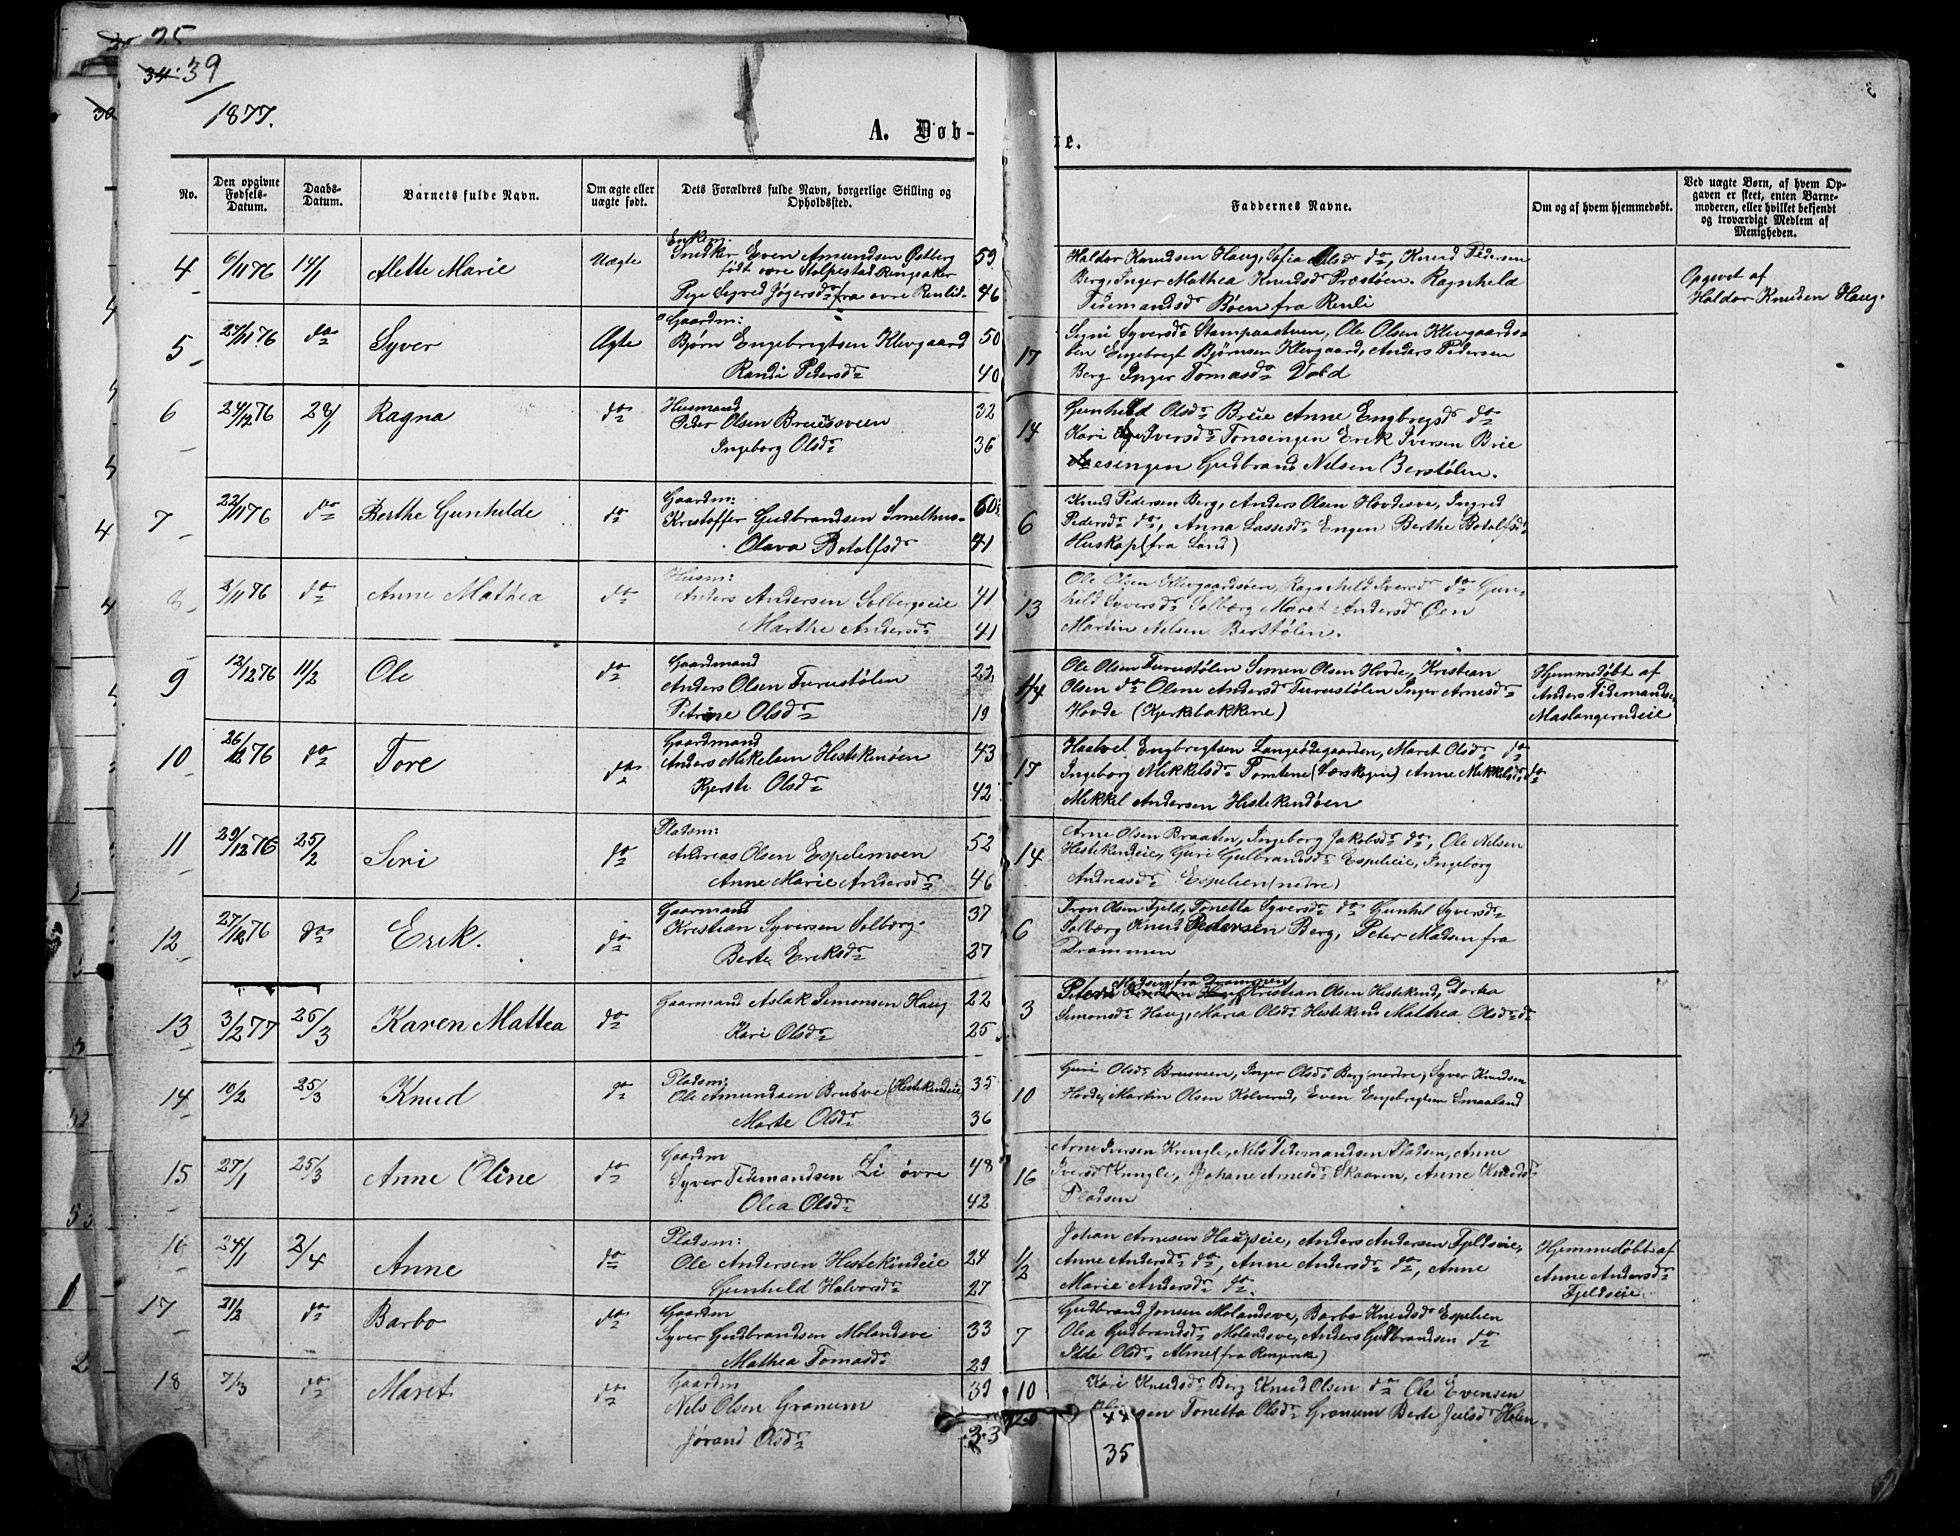 25
34. 39
1877.
A. Døb-
e.
No.
Den opgivne Fødsels-Datum.
Daabs-Datum.
Barnets fulde Navn.
Om ægte eller uægte født.
Dets Forældres fulde Navn, borgerlige Stilling og Opholdssted.
Faddernes Navne.
Om og af hvem hjemmedøbt.
Ved uægte Børn, af hvem Opgaven er skeet, enten Barnemoderen, eller hvilket bekjendt og troværdigt Medlem af Menigheden.
4 6/11 76 14/1 Alette Marie Uægte
Enkem:
Snidker Even Amundsen Østberg 59
født øvre Stolpestad Ringsaker
Pige Sigrid Jøgersdr fra øvre Renlid 46
Haldor Knudsen Haug, Sofia Olsdr do, Knud Pedersen
Berg, Inger Mathea Knudsdr Præstøen. Ragnheld
Tidemandsdr Bøen fra Renli
Opgevet af
Haldor Knudsen Haug.
5 27/11 76 do Syver Ægte
Gaardm:
Bjørn Engebregtsen Klevgaard 50
Randi Pedersdr 40
17
Signe Syversdr Stampaastuen, Ole Olsen Klevgaards-
øen Engebregt Bjørnsen Klevgaard, Anders Pedersen
Berg Inger Tomasdr Vold
6 24/12 76 28/1 Ragna do
Husmand
Peder Olsen Bruesveen 32
Ingeborg Olsdr 36
14
Gunhild Olsdr Brue Anne Engbregsdr do
Kari Iversdr Tonsingen Erik Iversen Brie
esingen Gudbrand Nelsen Berstølen.
7 22/11 76 do Berthe Gunhilde do
Gaardm:
Kristoffer Gudbrandsen Smelhus- 60
Olava Botolfsdr 41
6
Knud Pedersen Berg, Anders Olsen Hovdesve, Ingred
Pedersdr do, Anna Lassesdr Engen Berthe Botolfsdr
Huskap (fra Land)
8 2/11 76 do Anne Mathea do
Husm:
Anders Andersen Solbergseie 41
Marthe Andersdr 41
13
Ole Olsen Klevgaardsøen, Ragnheld Iversdr do Gun-
hild Syversdr Solberg Maret Andersdr Øen
Martin Nelsen Berstølen.
9 12/12 76 11/2 Ole do
Gaardmand
Anders Olsen Turustølen 22
Petrine Olsdr 19
4
Ole Olsen Turustølen Simen Olsen Hovde, Kristian
Olsen do Oline Andersdr Turustølen Inger Arnesdr
Hovde (Kjerkebakkene)
Hjemmedøbt af
Anders Tidemandsen
Maslangerudeie
10 26/12 76 do Tore do
Gaardmand
Anders Mikelsen Hestekinøen 43
Kjersti Olsdr 42
17
Haalvel Engbregtsen Langeødegaarden, Maret Olsdr do
Ingeborg Mikkelsdr Tomtene (Torskogen) Anne Mikkelsdr do
Mikkel Andersen Hestekindøen
11 29/12 76 25/2 Siri do
Pladsm:
Andreas Olsen Espeliemoen 52
Anne Marie Andersdr 46
14
Arne Olsen Braaten, Ingeborg Jakobsdr do, Ole Nelsen
Hestekindeie, Guri Gulbrandsdr Espelieie, Ingeborg
Andreasdr Espelien (nedre)
12 27/12 76 do Erik. do
Gaarmand
Kristian Syversen Solberg 37
Berte Eriksdr 27
6
Tron Olsen Fjeld, Tonetta Syversdr do Gunhel Syversdr
Solberg Knud Pedersen Berg, Peter Madsen fra
Drammen
13 3/2 77 25/3 Karen Mattea do
Gaarmand Aslak Simonsen Haug 22
Kari Olsdr 25
3
Peter Madsen fra Drammen Kristian Olsen Hestekind, Dorka
Simonsdr Haug, Maria Olsdr Hestekind Mathea Olsdr do
14 10/2 25/3 Knud do
Pladsm:
Ole Amundsen Brubve (Hestekindeie) 35
Marte Olsdr 36
10
Guri Olsdr Brusveen, Inger Olsdr Berg nordre, Syver Knudsen
Hovde, Martin Olsen Kolverud, Even Engebregtsen Smaaland
15 27/1 25/3 Anne Oline do
Gaardm
Syver Tidemandsen Li øvre 48
Olea Olsdr 42
16
Arne Iversen Kringle, Nels Tidemandsen Pladsen, Anne
Iversdr Kringle, Johane Arnesdr Skaaren, Anne Knudsdr
Pladsen
16 24/1 2/4 Anne do
Pladsm:
Ole Andersen Hestekindeie 24
Gunheld Halvorsdr 27
1/2
Johan Arnesen Haugseie, Anders Andersen Fjeldseie,
Anne Andersdr do, Anne Andersdr do, Anne
Marie Andersdr do.
Hjemmedøbt af
Anne Andersdr
Fjeldseie
17 21/2 do Barbo do
Gaardm
Syver Gudbrandsen Molandsve 33
Mathea Tomasdr 29
7
Gudbrand Jonsen Molandsve, Barbo Knudsdr Espelien
Olea Gudbrandsdr Molandsve, Anders Gudbrandsen do
Ilda Olsdr Alme (fra Ringerike)
18 7/3 do Maret do
Gaardm
Nels Olsen Granum 39
Jørand Olsdr 33
10
Kari Knudsdr Berg Knud Olsen do Ole Evensen
Tonetta Olsdr Granum Berte Juelsdr Holen.
35